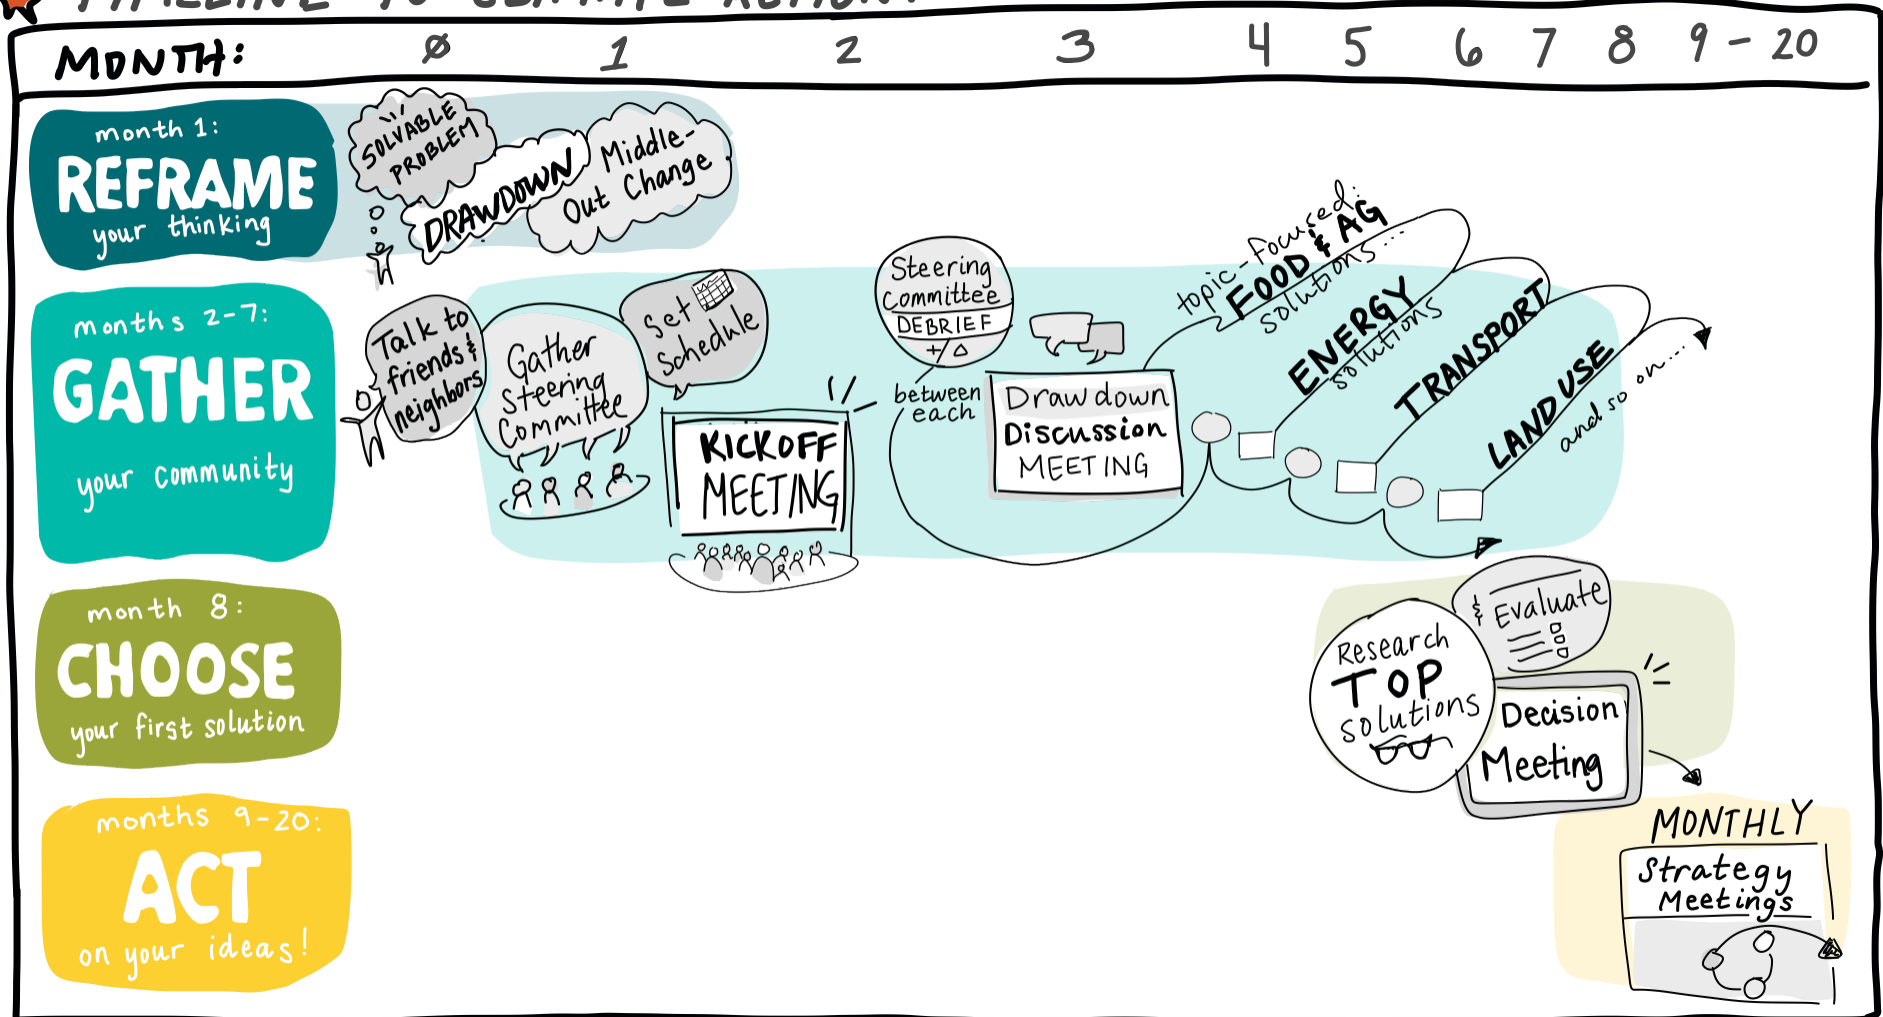 TIMELINE TO CLIMATE ACTION
MONTH: 0 1 2 3 4 5 6 7 8 9 - 20
month 1:
REFRAME
your thinking
SOLVABLE
PROBLEM
DRAWDOWN
Middle-
Out Change
months 2-7:
GATHER
your community
Talk to
friends &
neighbors
Gather
Steering
Committee
Set
Schedule
KICKOFF
MEETING
Steering
Committee
DEBRIEF
+/Δ
between
each
Drawdown
Discussion
MEETING
topic-focused:
FOOD & AG
solutions...
ENERGY
solutions
TRANSPORT
LAND USE
and so on....
month 8:
CHOOSE
your first solution
Research
TOP
solutions
& Evaluate
Decision
Meeting
months 9-20:
ACT
on your ideas!
MONTHLY
Strategy
Meetings